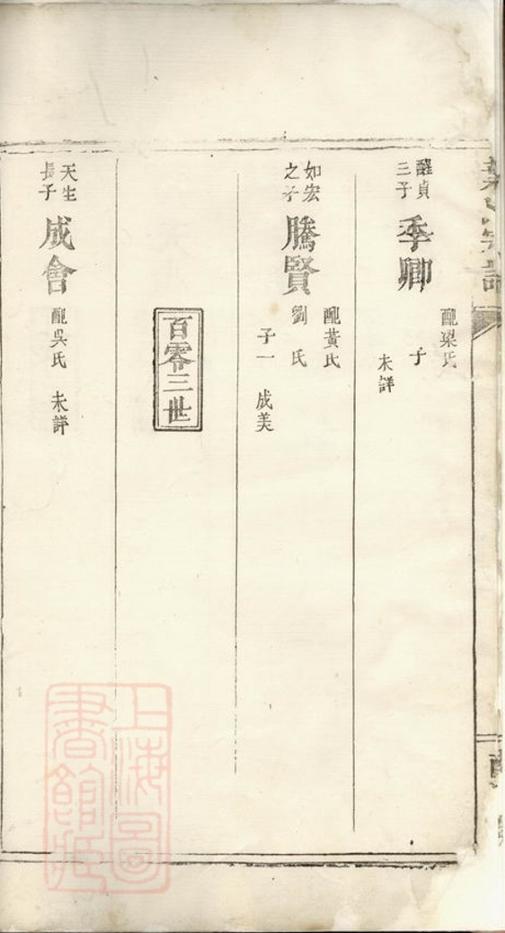 醒貞
三子
季卿
配梁氏
子
未詳
如宏
之子
騰賢
配黃氏
劉氏
子一 成美
百零三世
天生
長子
成會
配吳氏 未詳
上海圖
書館